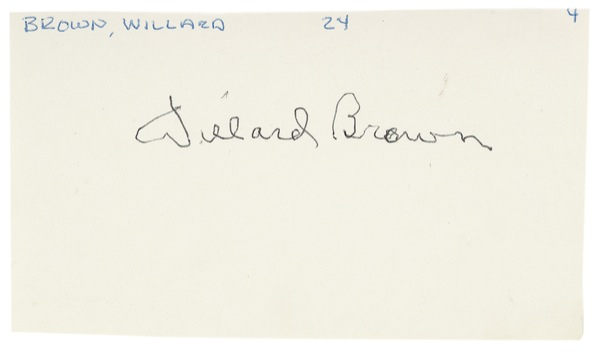 BROWN, WILLARD 24 4
Willard Brown